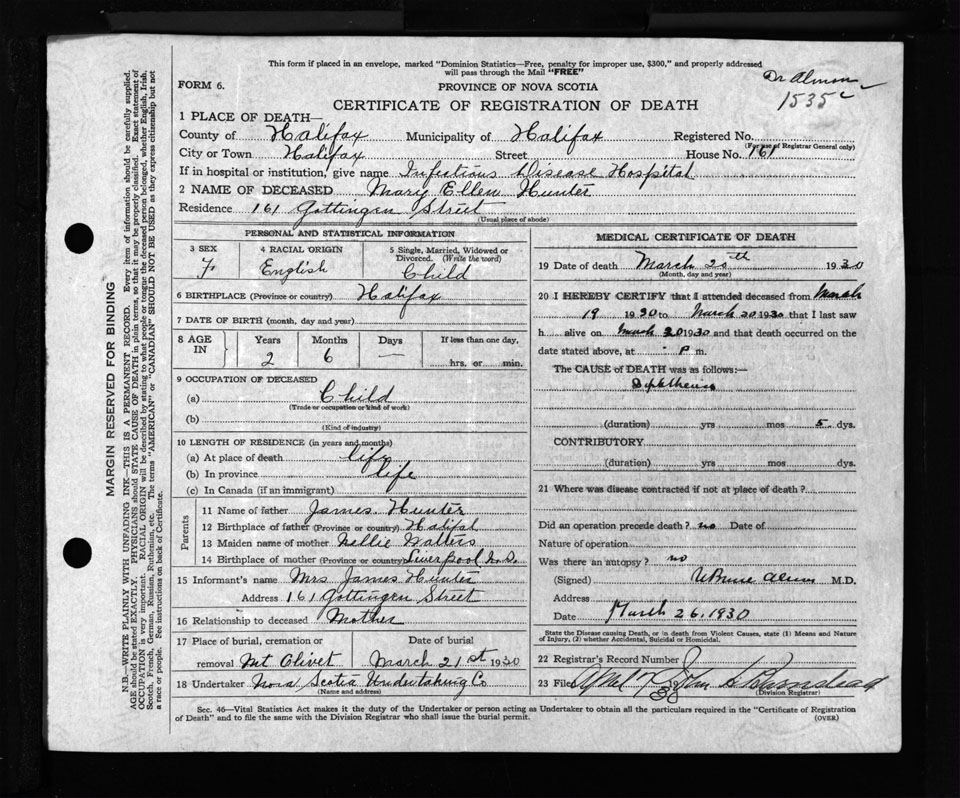 This form if placed in an envelope, marked "Dominion Statistics—Free, penalty for improper use, $300," and properly addressed
will pass through the Mail "FREE"
FORM 6.
PROVINCE OF NOVA SCOTIA
Dr Almon
1535
CERTIFICATE OF REGISTRATION OF DEATH
1 PLACE OF DEATH—
County of Halifax Municipality of Halifax Registered No.
(For use of Registrar General only)
City or Town Halifax Street House No. 161
If in hospital or institution, give name Infectious Disease Hospital
2 NAME OF DECEASED Mary Ellen Hunter
Residence 161 Gottingen Street
(Usual place of abode)
PERSONAL AND STATISTICAL INFORMATION
3 SEX 4 RACIAL ORIGIN 5 Single, Married, Widowed or
Divorced. (Write the word)
F. English Child
6 BIRTHPLACE (Province or country) Halifax
7 DATE OF BIRTH (month, day and year)
8 AGE IN Years Months Days If less than one day,
2 6 — hrs. or min.
9 OCCUPATION OF DECEASED
(a) Child
(Trade or occupation or kind of work)
(b)
(Kind of industry)
10 LENGTH OF RESIDENCE (in years and months)
(a) At place of death life
(b) In province life
(c) In Canada (if an immigrant)
Parents
11 Name of father James Hunter
12 Birthplace of father (Province or country) Halifax
13 Maiden name of mother Nellie Walters
14 Birthplace of mother (Province or country) Liverpool N.S.
15 Informant's name Mrs James Hunter
Address 161 Gottingen Street
16 Relationship to deceased Mother
17 Place of burial, cremation or Date of burial
removal Mt Olivet March 21st 1930
18 Undertaker Nova Scotia Undertaking Co
(Name and address)
MEDICAL CERTIFICATE OF DEATH
19 Date of death March 20th 1930
(Month, day and year)
20 I HEREBY CERTIFY that I attended deceased from March
19 1930 to March 20 1930 that I last saw
h alive on March 20 1930 and that death occurred on the
date stated above, at P m.
The CAUSE of DEATH was as follows:—
Diphtheria
(duration) yrs mos 5 dys.
CONTRIBUTORY
(duration) yrs mos dys.
21 Where was disease contracted if not at place of death?
Did an operation precede death? no Date of
Nature of operation
Was there an autopsy? no
(Signed) M.D.
Address
Date March 26, 1930
State the Disease causing Death, or in death from Violent Causes, state (1) Means and Nature
of Injury, (2) whether Accidental, Suicidal or Homicidal.
22 Registrar's Record Number
23 Filed
(Division Registrar)
Sec. 46—Vital Statistics Act makes it the duty of the Undertaker or person acting as Undertaker to obtain all the particulars required in the "Certificate of Registration
of Death" and to file the same with the Division Registrar who shall issue the burial permit. (OVER)
MARGIN RESERVED FOR BINDING
N.B.—WRITE PLAINLY WITH UNFADING INK—THIS IS A PERMANENT RECORD. Every item of information should be carefully supplied.
AGE should be stated EXACTLY. PHYSICIANS should STATE CAUSE OF DEATH in plain terms, so that it may be properly classified. Exact statement of
OCCUPATION is very important. RACIAL ORIGIN will be described by stating to what people or tongue the deceased person belonged, whether English, Irish,
Scotch, French, German, Russian, Ruthenian, etc. The terms "AMERICAN" or "CANADIAN" SHOULD NOT BE USED as they express citizenship but not
a race or people. See instructions on back of Certificate.